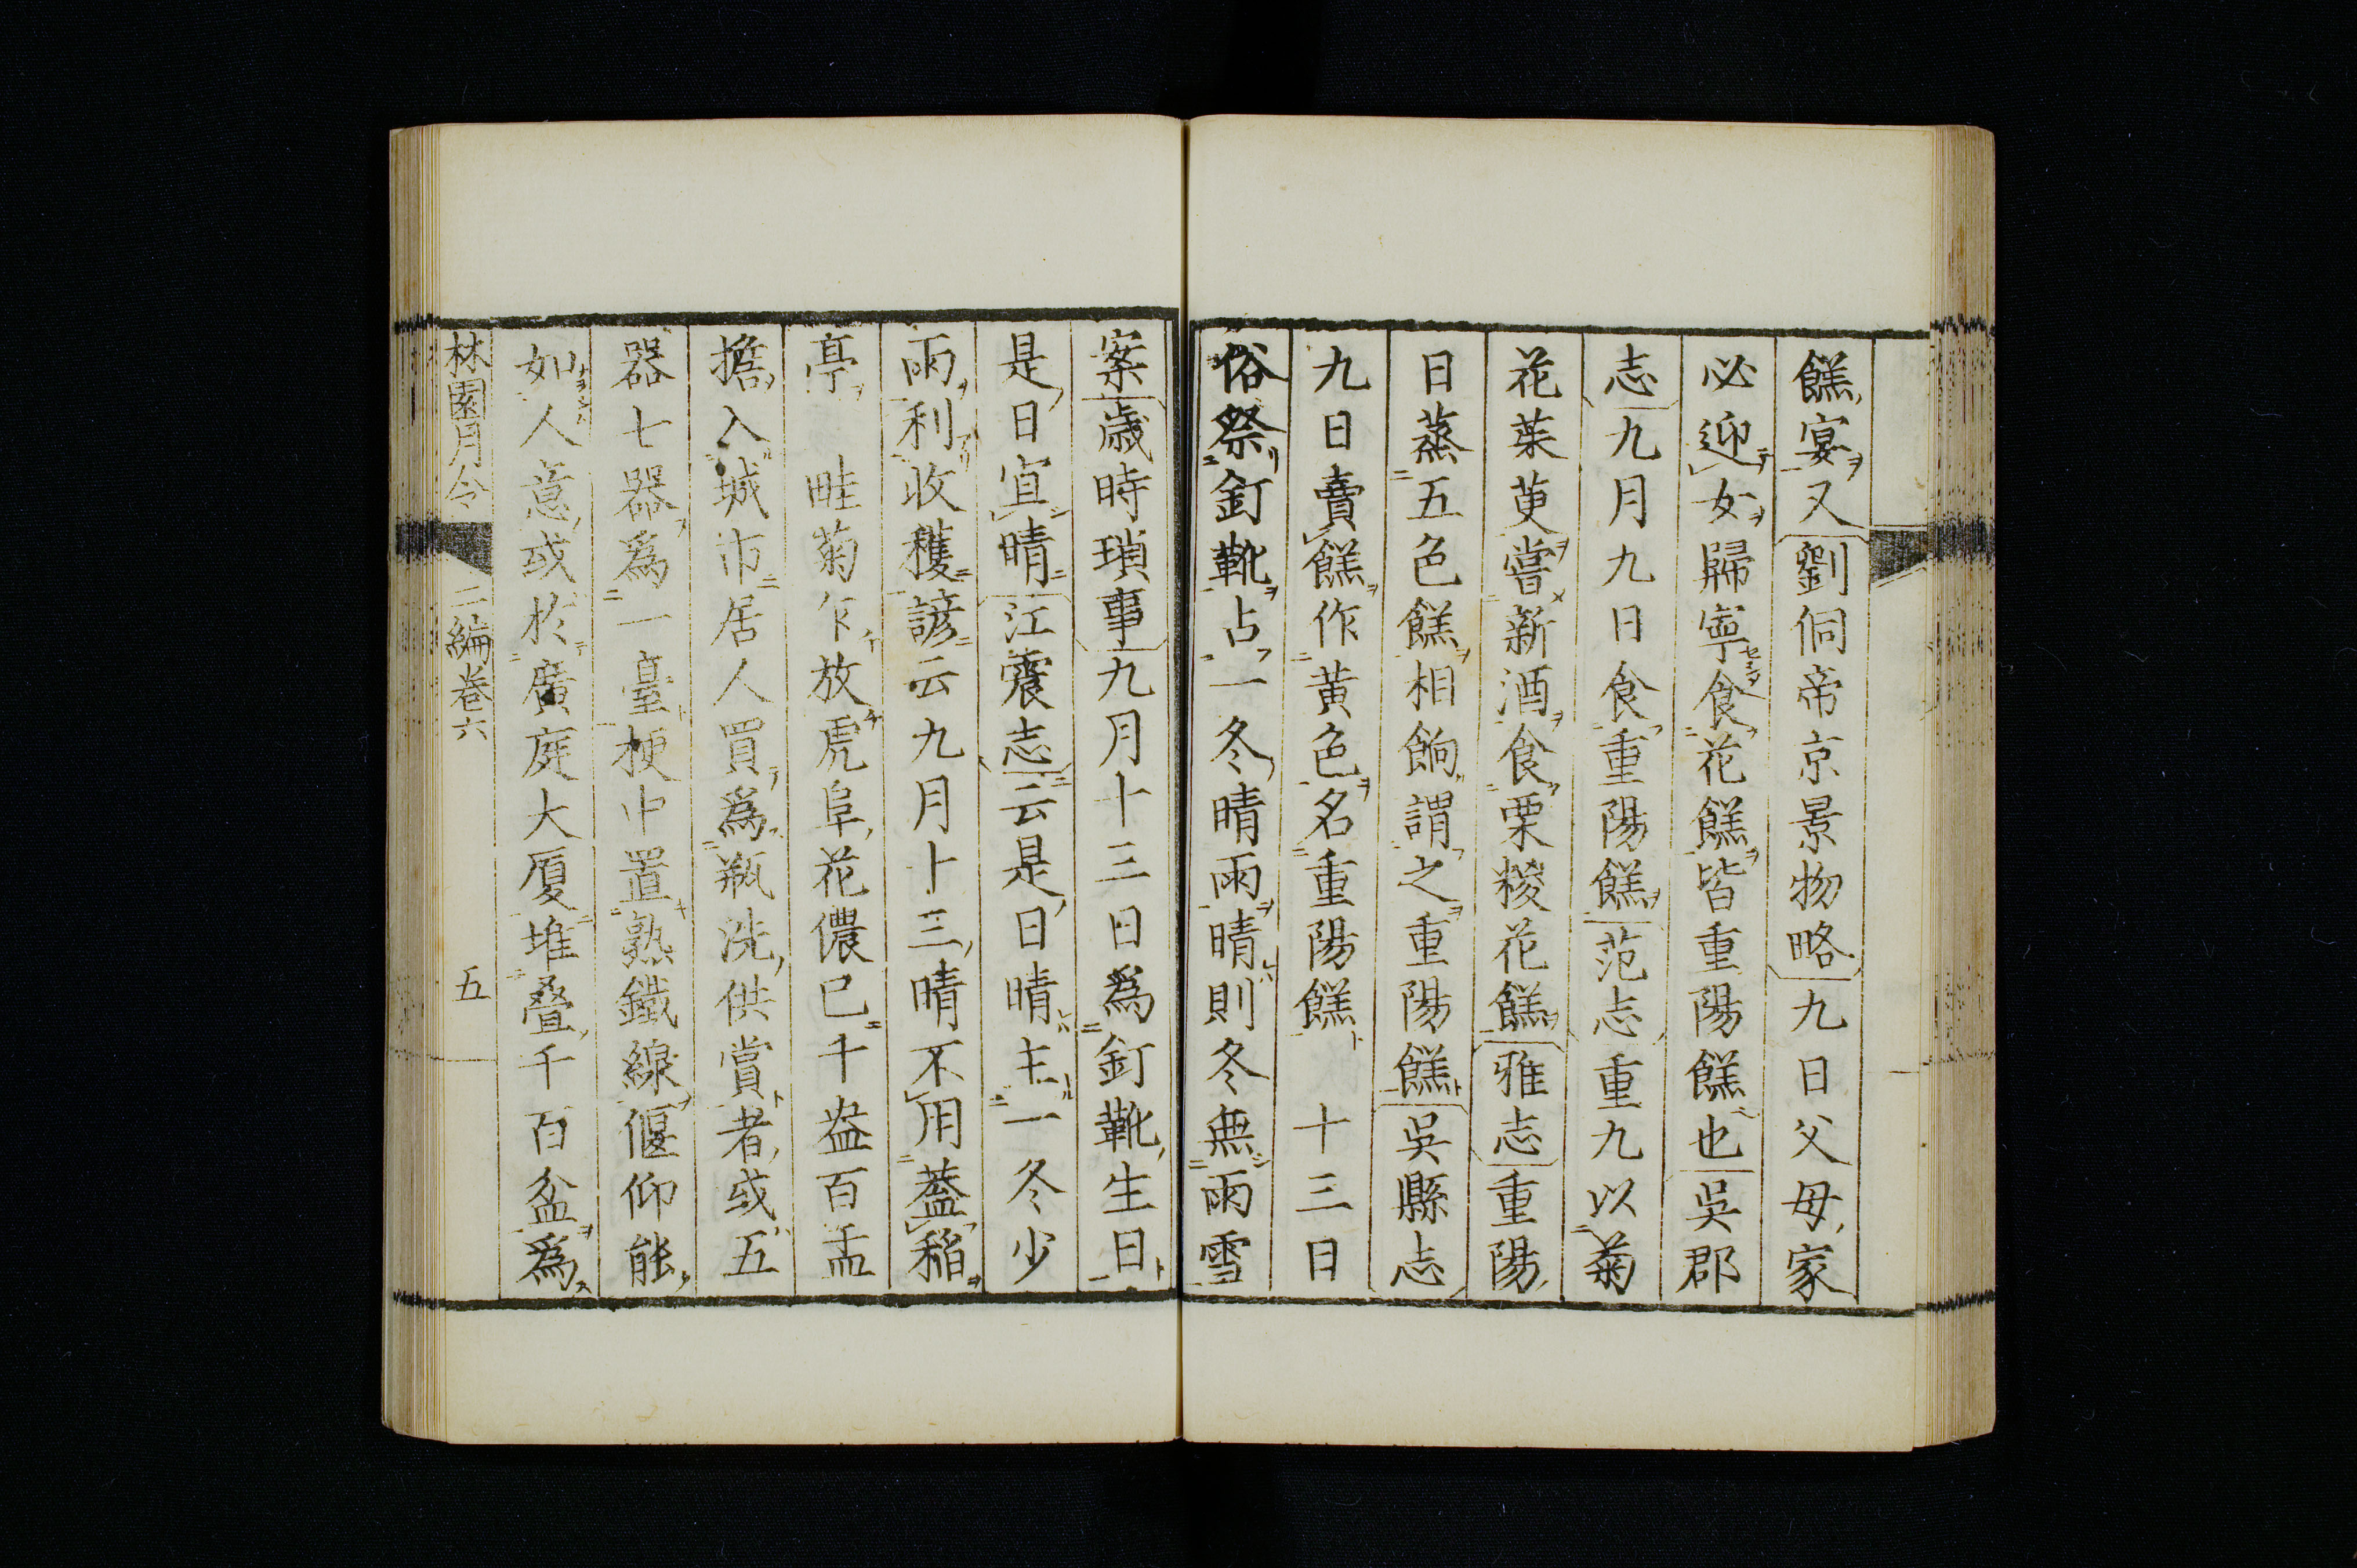 餻宴又劉侗帝京景物略九日父母家
必迎女歸寧食花餻皆重陽餻也吳郡
志九月九日食重陽餻范志重九以菊
花茱萸嘗新酒食栗糉花餻雅志重陽
日蒸五色餻相餉謂之重陽餻吳縣志
九日賣餻作黃色名重陽餻 十三日
俗祭釘靴占一冬晴雨晴則冬無雨雪
案歲時瑣事九月十三日爲釘靴生日
是日宜晴江震志云是日晴主一冬少
雨利收穫諺云九月十三晴不用蓋稻
亭 畦菊乍放虎阜花儂已千盎百盂
擔入城市居人買爲瓶洗供賞者或五
器七器爲一臺梗中置熟鐵線偃仰能
如人意或於廣庭大厦堆疊千百盆爲
林園月令 二編卷六 五